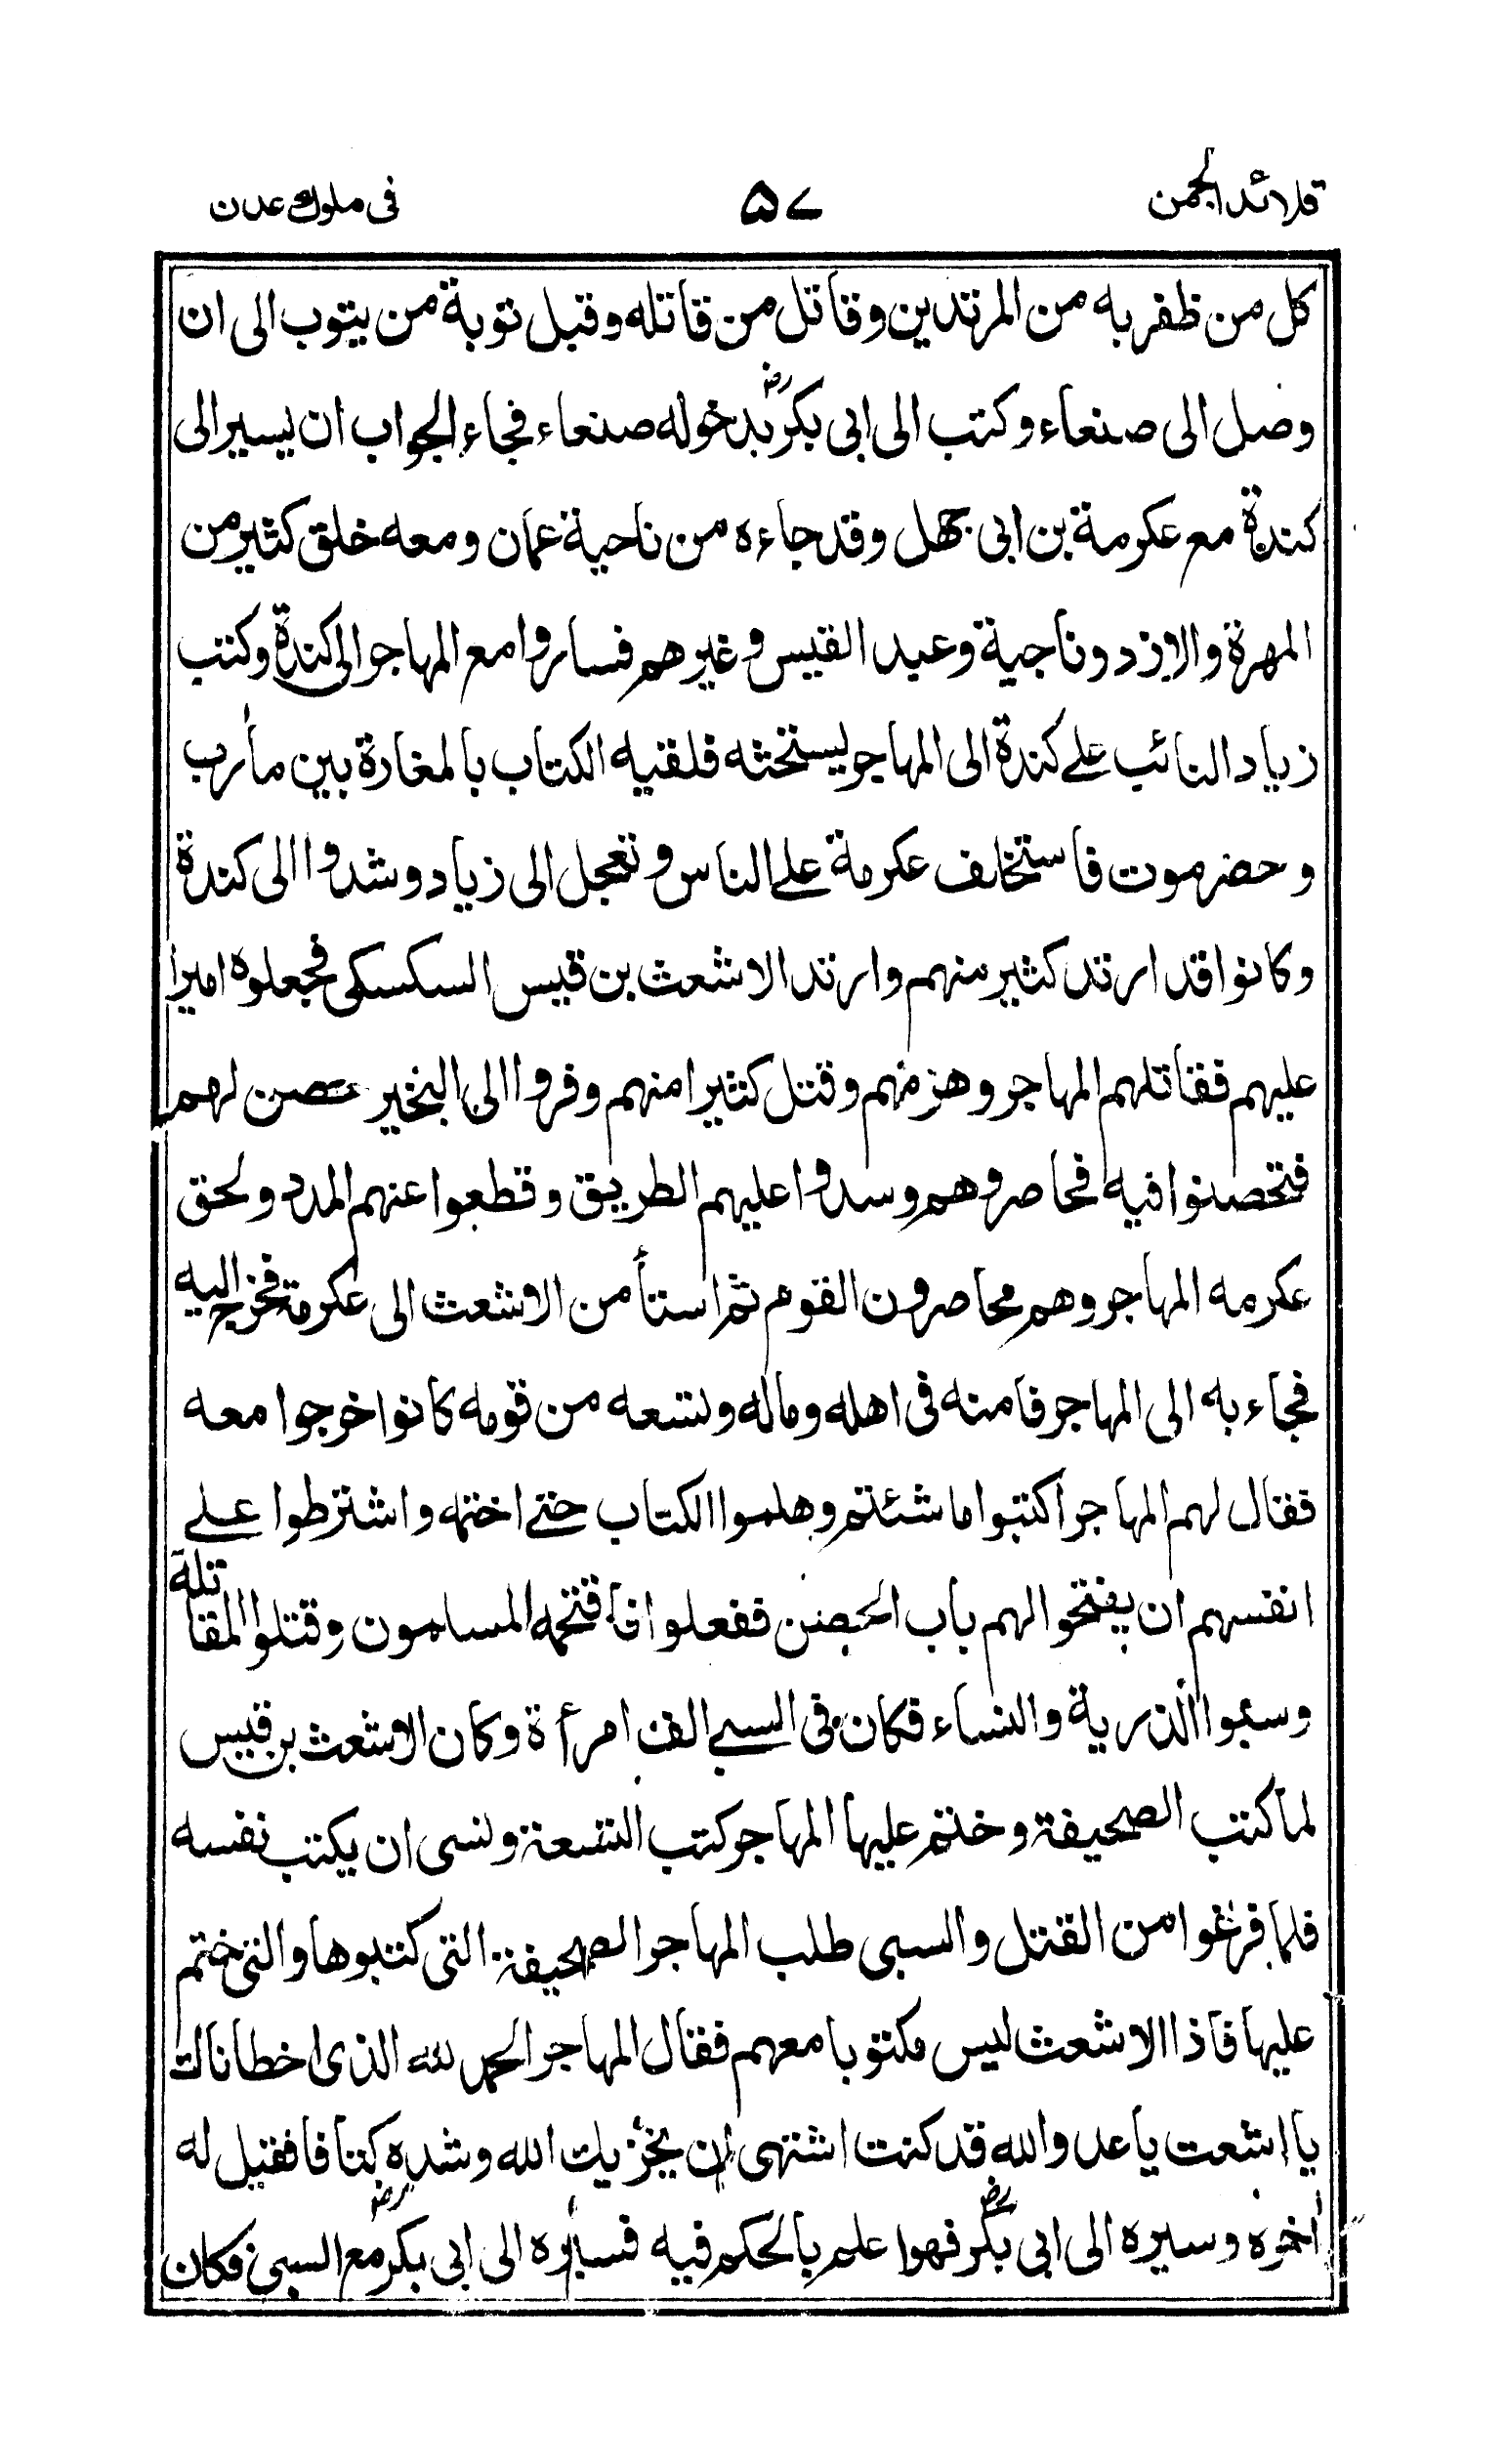 قلائد الجمن ۵۷ فى ملوك عدن
كل من ظفر به من المرتدين وقاتل من قاتله وقبل توبة من يتوب الى ان
وصل الى صنعاء وكتب الى ابى بكر رض بدخوله صنعاء فجاء الجواب ان يسير الى
كندة مع عكرمة بن ابى جهل وقد جاءه من ناحية عمان ومعه خلق كثير من
المهرة والازد وناجية وعبد القيس وغيرهم فساروا مع المهاجر الى كندة وكتب
زياد النائب على كندة الى المهاجر ليستحثه فلقيه الكتاب بالمغازة بين مأرب
وحضرموت فاستخلف عكرمة على الناس وتعجل الى زياد وشدوا الى كندة
وكانوا قد ارتد كثير منهم وارتد الاشعث بن قيس السكسكى فجعلوه اميرا
عليهم فقاتلهم المهاجر وهزمهم وقتل كثيرا منهم وفروا الى النخير حصن لهم
فتحصنوا فيه فحاصروهم وسدوا عليهم الطريق وقطعوا عنهم المدد ولحق
عكرمه المهاجر وهم محاصرون القوم ثم استأمن الاشعث الى عكرمة فخرج اليه
فجاء به الى المهاجر فامنه فى اهله وماله وتسعه من قومه كانوا خرجوا معه
فقال لهم المهاجر اكتبوا ما شئتم وهلموا الكتاب حتى اختمه واشترطوا على
انفسهم ان يفتحوا لهم باب الحصن ففعلوا فافتتحه المسلمون وقتلوا المقاتلة
وسبوا الذرية والنساء فكان فى السبى الف امرأة وكان الاشعث بن قيس
لما كتب الصحيفة وختم عليها المهاجر كتب التسعة ونسى ان يكتب نفسه
فلما فرغوا من القتل والسبى طلب المهاجر الصحيفة التى كتبوها والتى ختم
عليها فاذا الاشعث ليس مكتوبا معهم فقال المهاجر الحمد لله الذى اخطاناك
يا اشعت يا عدو الله قد كنت اشتهى ان يخزيك الله وشده كتافا فقيل له
أخوه وسيره الى ابى بكر رض فهو اعلم بالحكم فيه فسيره الى ابى بكر رض مع السبى فكان